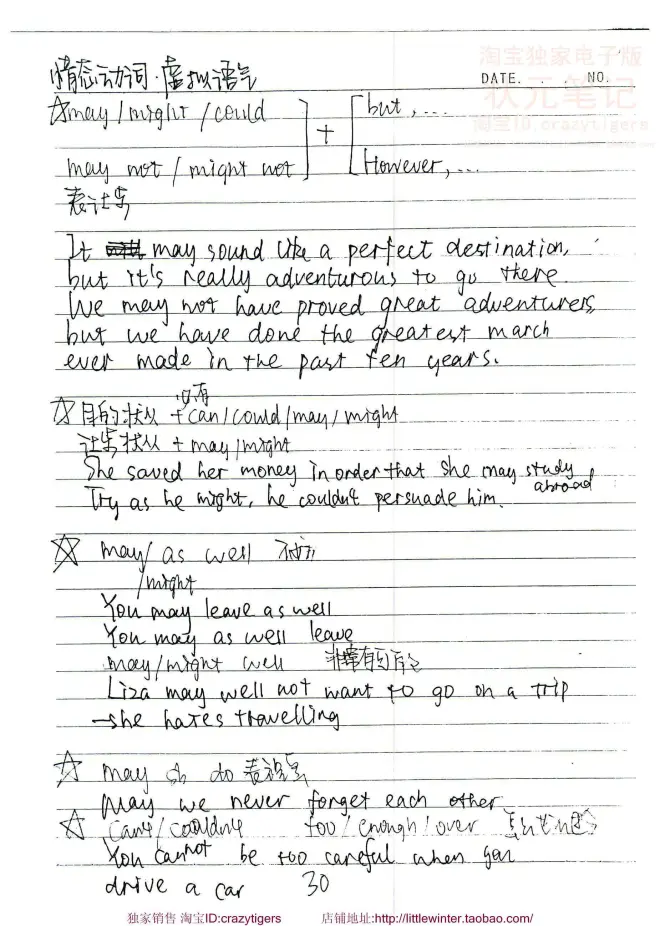 淘宝独家电子版
情态动词·虚拟语气 DATE. . . NO.
状元笔记
淘宝ID:crazytigers
☆may/might/could
+ but, ...
may not/might not However, ...
表让步
It may sound like a perfect destination,
but it's really adventurous to go there.
We may not have proved great adventurers,
but we have done the greatest march
ever made in the past ten years.
只有
☆目的状从 + can/could/may/might
让步状从 + may/might
She saved her money in order that she may study
abroad
Try as he might, he couldn't persuade him.
☆ may/ as well 不妨
/might
You may leave as well
You may as well leave
may/might well 非常有可能
Liza may well not want to go on a trip
→she hates travelling
☆ may sb do 表祝愿
May we never forget each other
☆ can't/couldn't too/enough/over
You cannot be too careful when you
drive a car 30
独家销售 淘宝ID:crazytigers 店铺地址:http://littlewinter.taobao.com/